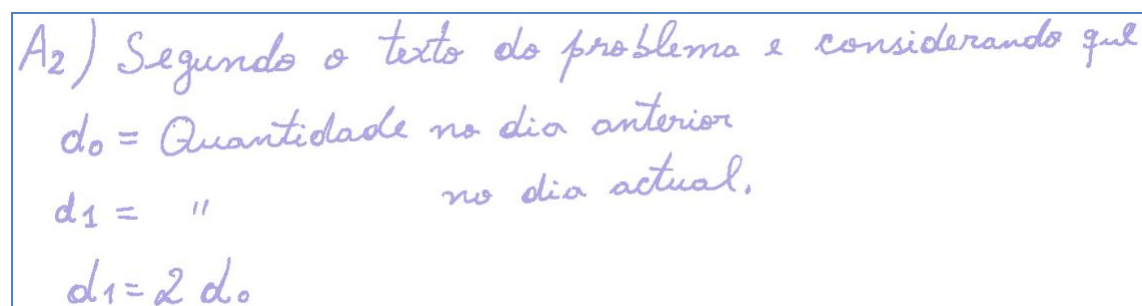 A2) Segundo o texto do problema e considerando que
d0 = Quantidade no dia anterior
d1 = " no dia actual.
d1 = 2 d0